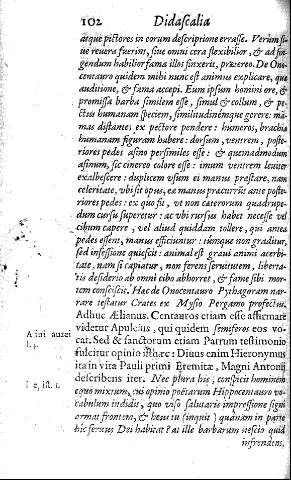 102 Didascalia
atque pictores in eorum descriptione errasse. Verum siue
ue revera fuerint, sive omni cera flexibilior, & ad fin-
gendum habilior fama illos finxerit, prætereo. De Ono-
centauro quidem mihi nunc est animus explicare, quæ
auditione, & fama accepi. Eum ipsum homini ore, &
promissa barba similem esse, simul & collum, & pe-
ctus humanam speciem, similitudinémque gerere: mam-
mas distantes ex pectore pendere: humeros, brachia
humanam figuram habere: dorsum, ventrem, poste-
riores pedes asino persimiles esse: & quemadmodum
asinum, sic cinereo colore esse: imum ventrem leviter
exalbescere: duplicem usum ei manus præstare, nam
celeritate, ubi sit opus, eæ manus præcurrunt ante poste-
riores pedes: ex quo fit, ut non cæterorum quadrupe-
dum cursu superetur: ac ubi rursus habet necesse vel
cibum capere, vel aliud quiddam tollere, qui antea
pedes essent, manus efficiuntur: tumque non graditur,
sed insessione quiescit: animal est gravi animi acerbi-
tate, nam si capiatur, non ferens servitutem, liberta-
tis desiderio ab omni cibo abhorret, & fame sibi mor-
tem consciscit. Hæc de Onocentauro Pythagoram nar-
rare testatur Crates ex Mysio Pergamo profectus.
Adhuc Ælianus. Centauros etiam esse affirmare
videtur Apuleius, qui quidem semiferos eos vo-
cat. Sed & sanctorum etiam Patrum testimonio
fulcitur opinio isthæc: Divus enim Hieronymus
ita in vita Pauli primi Eremitæ, Magni Antonii
describens iter. Nec plura his, conspicit hominem
equo mixtum, cui opinio poëtarum Hippocentauro vo-
cabulum indidit, quo viso salutaris impressione signi
armat frontem, & heus tu (inquit) quanam in parte
hic servus Dei habitat? at ille barbarum nescio quid
infrendens,